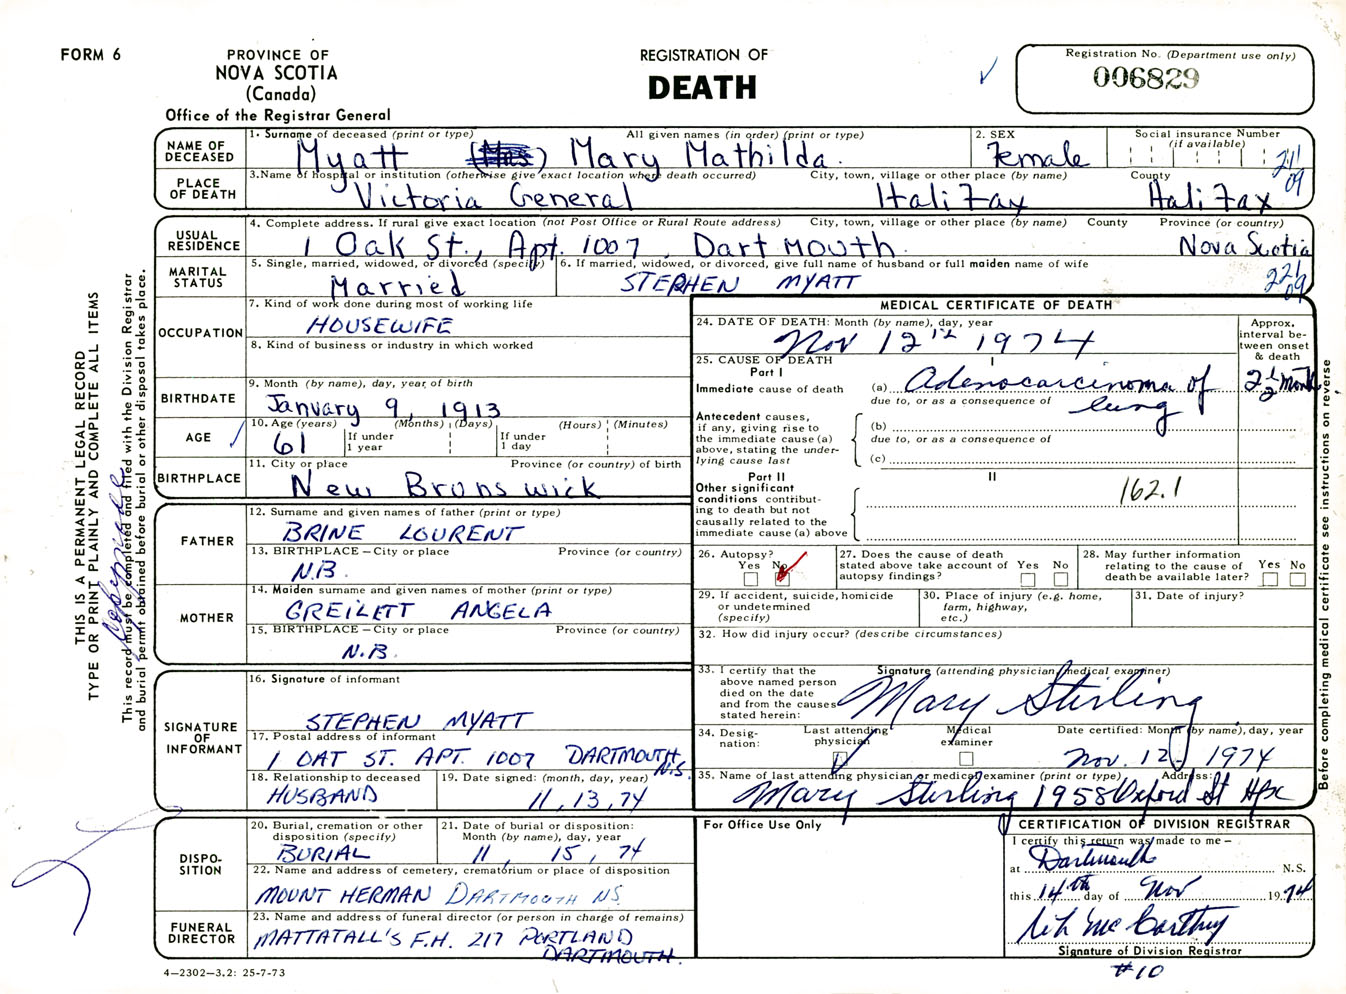 FORM 6
PROVINCE OF
NOVA SCOTIA
(Canada)
Office of the Registrar General
REGISTRATION OF
DEATH
Registration No. (Department use only)
006829
NAME OF DECEASED
1. Surname of deceased (print or type) All given names (in order) (print or type)
Myatt (Mrs) Mary Mathilda.
2. SEX
Female
Social insurance Number
(if available)
211
09
PLACE OF DEATH
3. Name of hospital or institution (otherwise give exact location where death occurred) City, town, village or other place (by name) County
Victoria General Halifax Halifax
USUAL RESIDENCE
4. Complete address. If rural give exact location (not Post Office or Rural Route address) City, town, village or other place (by name) County Province (or country)
1 Oak St., Apt. 1007, Dartmouth. Nova Scotia
221
09
MARITAL STATUS
5. Single, married, widowed, or divorced (specify)
Married
6. If married, widowed, or divorced, give full name of husband or full maiden name of wife
STEPHEN MYATT
OCCUPATION
7. Kind of work done during most of working life
HOUSEWIFE
8. Kind of business or industry in which worked
BIRTHDATE
9. Month (by name), day, year of birth
January 9, 1913
AGE
10. Age (years) (Months) (Days) (Hours) (Minutes)
61 If under 1 year If under 1 day
BIRTHPLACE
11. City or place Province (or country) of birth
New Brunswick
FATHER
12. Surname and given names of father (print or type)
BRINE LOURENT
13. BIRTHPLACE – City or place Province (or country)
N.B.
MOTHER
14. Maiden surname and given names of mother (print or type)
GREILETT ANGELA
15. BIRTHPLACE – City or place Province (or country)
N.B.
SIGNATURE OF INFORMANT
16. Signature of informant
STEPHEN MYATT
17. Postal address of informant
1 OAT ST. APT. 1007 DARTMOUTH N.S.
18. Relationship to deceased
HUSBAND
19. Date signed: (month, day, year)
11, 13, 74
DISPOSITION
20. Burial, cremation or other disposition (specify)
BURIAL
21. Date of burial or disposition: Month (by name), day, year
11, 15, 74
22. Name and address of cemetery, crematorium or place of disposition
MOUNT HERMAN DARTMOUTH NS.
FUNERAL DIRECTOR
23. Name and address of funeral director (or person in charge of remains)
MATTATALL'S F.H. 217 PORTLAND
DARTMOUTH.
4–2302–3.2: 25-7-73
MEDICAL CERTIFICATE OF DEATH
24. DATE OF DEATH: Month (by name), day, year
Nov 12th 1974
Approx. interval between onset & death
25. CAUSE OF DEATH
Part I
I
Immediate cause of death
(a) Adenocarcinoma of lung
2 1/2 months
due to, or as a consequence of
Antecedent causes, if any, giving rise to the immediate cause (a) above, stating the underlying cause last
(b)
due to, or as a consequence of
(c)
Part II
II
Other significant conditions contributing to death but not causally related to the immediate cause (a) above
162.1
26. Autopsy?
Yes No
27. Does the cause of death stated above take account of autopsy findings?
Yes No
28. May further information relating to the cause of death be available later?
Yes No
29. If accident, suicide, homicide or undetermined (specify)
30. Place of injury (e.g. home, farm, highway, etc.)
31. Date of injury?
32. How did injury occur? (describe circumstances)
33. I certify that the above named person died on the date and from the causes stated herein:
Signature (attending physician/medical examiner)
Mary Stirling
34. Designation:
Last attending physician
Medical examiner
Date certified: Month (by name), day, year
Nov. 12 1974
35. Name of last attending physician or medical examiner (print or type) Address:
Mary Stirling 1958 Oxford St Hfx
For Office Use Only
CERTIFICATION OF DIVISION REGISTRAR
I certify this return was made to me –
at Dartmouth N.S.
this 14th day of Nov 1974
McCarthy
Signature of Division Registrar
#10
THIS IS A PERMANENT LEGAL RECORD
TYPE OR PRINT PLAINLY AND COMPLETE ALL ITEMS
This record must be completed and filed with the Division Registrar
and burial permit obtained before burial or other disposal takes place.
Before completing medical certificate see instructions on reverse